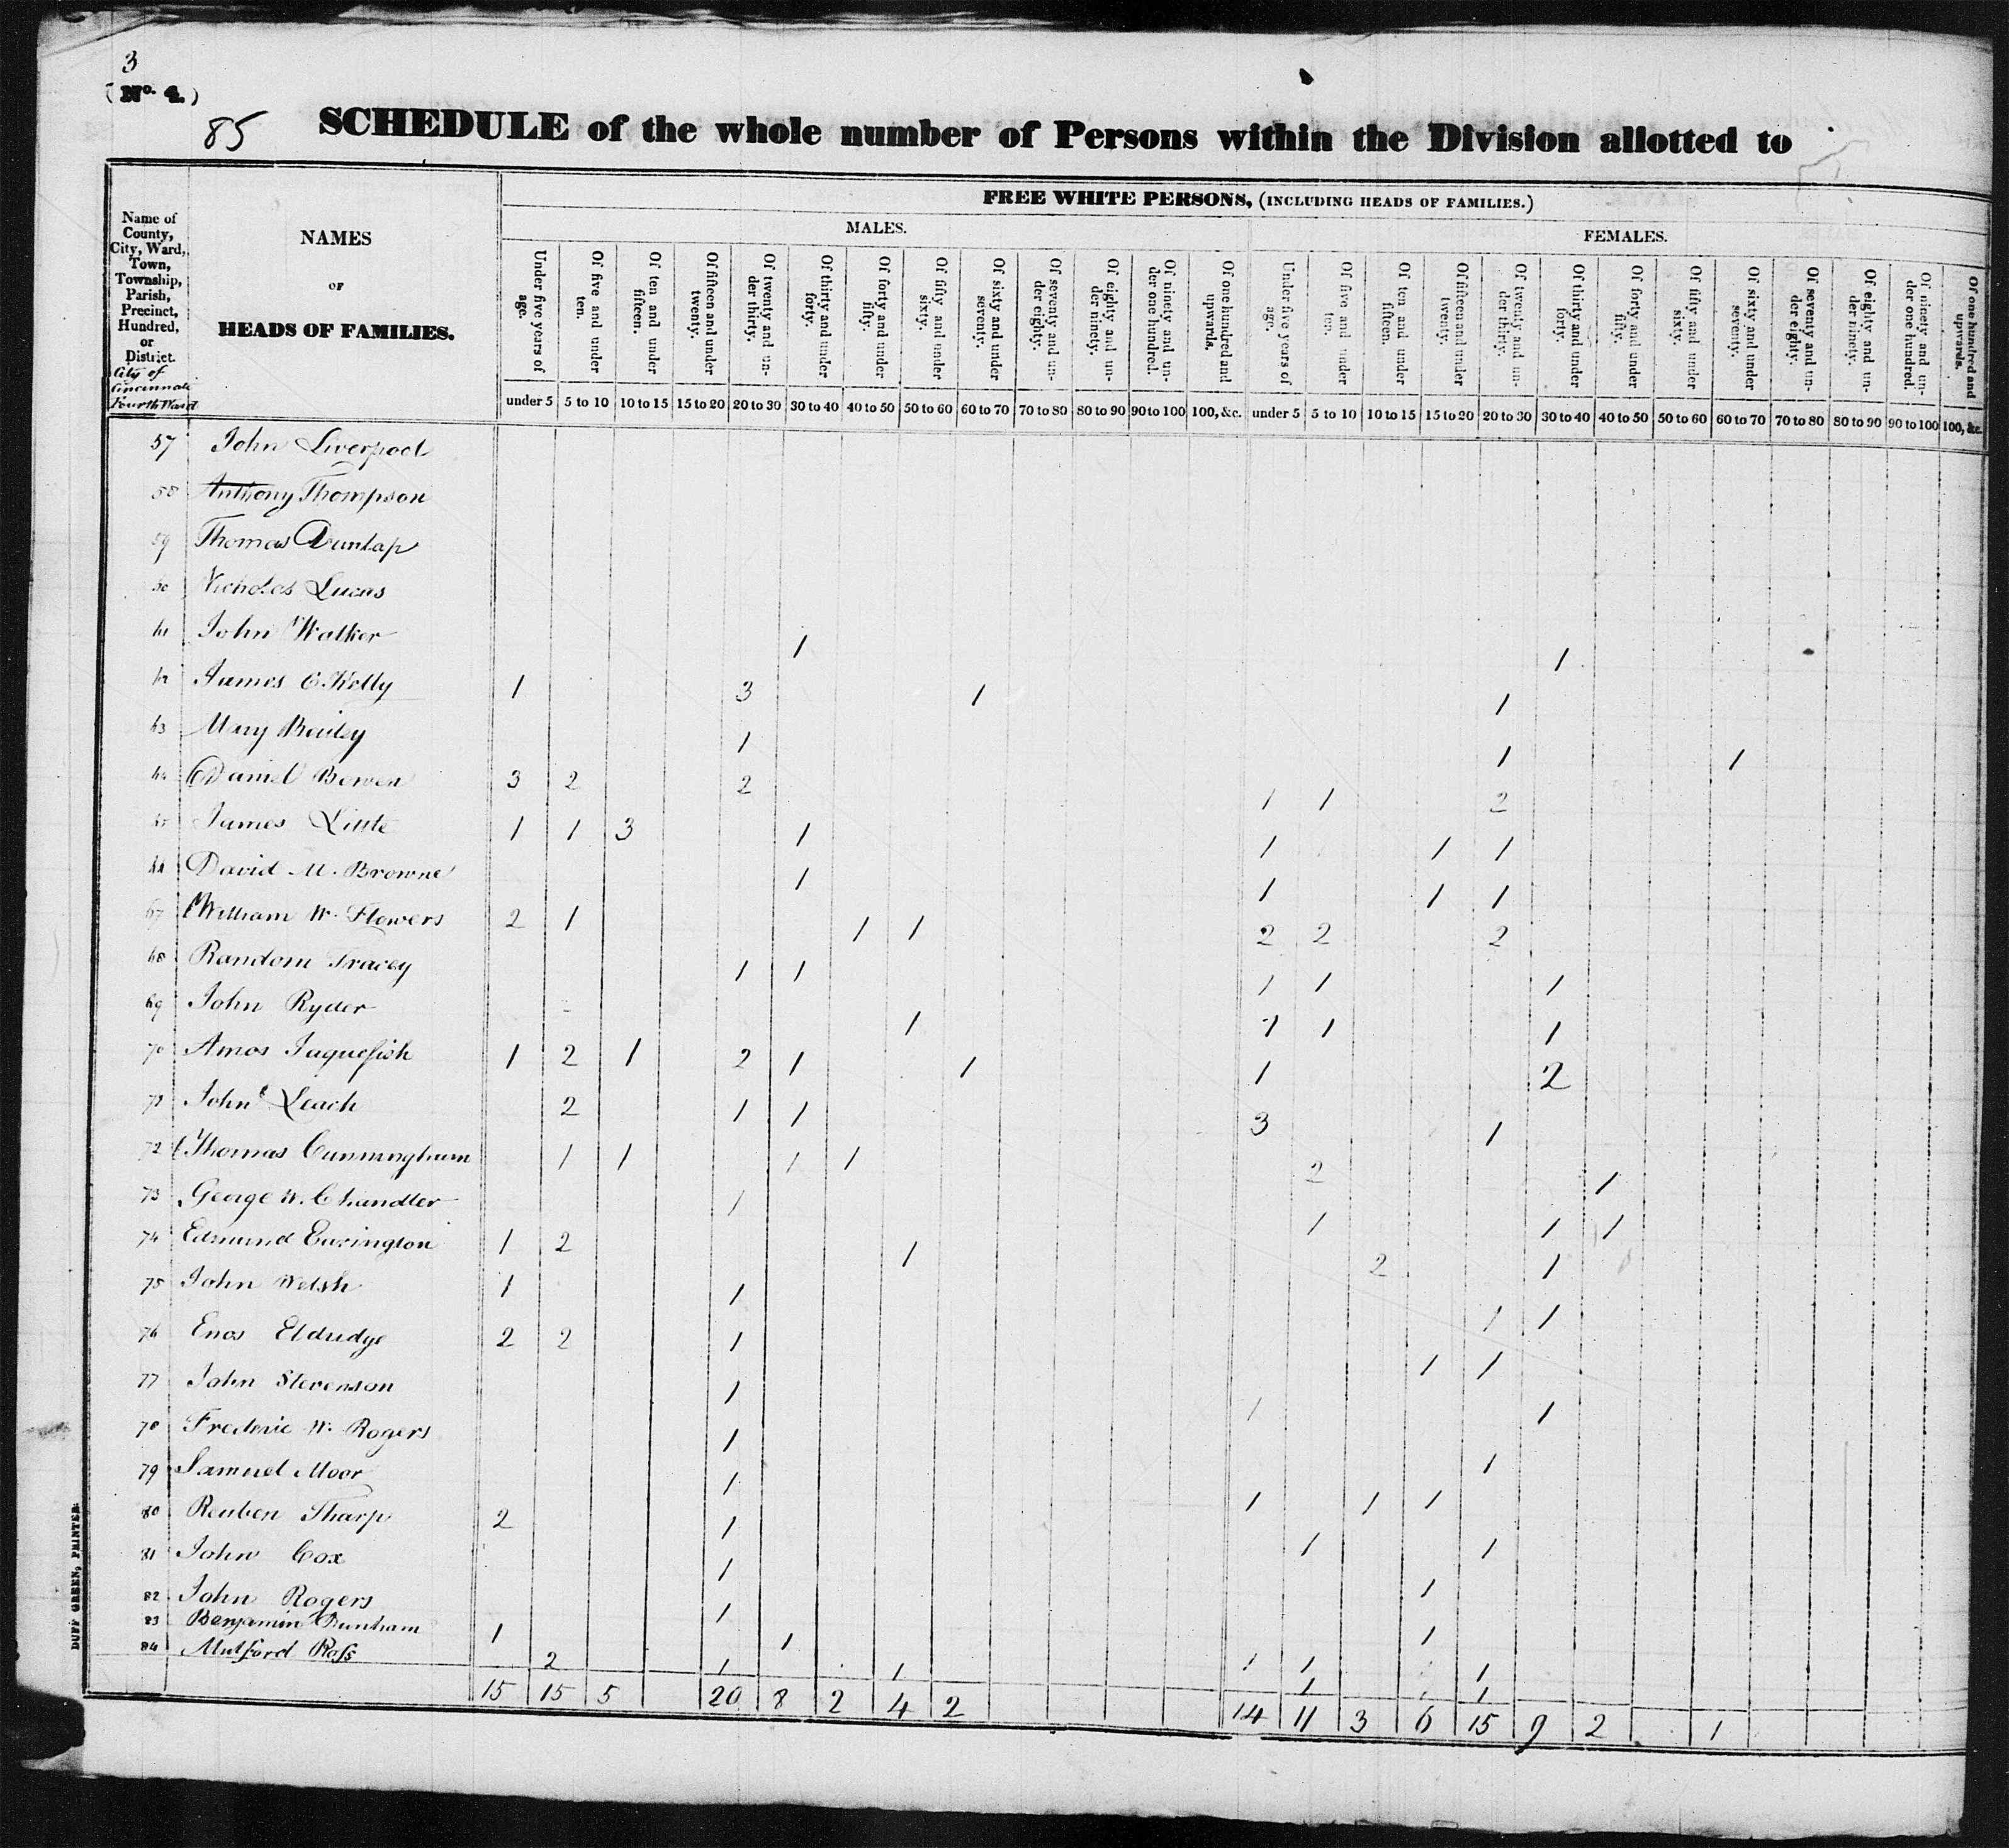 3
(No. 4.)
85
SCHEDULE of the whole number of Persons within the Division allotted to
FREE WHITE PERSONS, (INCLUDING HEADS OF FAMILIES.)
MALES. FEMALES.
Name of County, City, Ward, Town, Township, Parish, Precinct, Hundred, or District.
City of Cincinnati Fourth Ward
NAMES
OF
HEADS OF FAMILIES.
Under five years of age.
Of five and under ten.
Of ten and under fifteen.
Of fifteen and under twenty.
Of twenty and under thirty.
Of thirty and under forty.
Of forty and under fifty.
Of fifty and under sixty.
Of sixty and under seventy.
Of seventy and under eighty.
Of eighty and under ninety.
Of ninety and under one hundred.
Of one hundred and upwards.
Under five years of age.
Of five and under ten.
Of ten and under fifteen.
Of fifteen and under twenty.
Of twenty and under thirty.
Of thirty and under forty.
Of forty and under fifty.
Of fifty and under sixty.
Of sixty and under seventy.
Of seventy and under eighty.
Of eighty and under ninety.
Of ninety and under one hundred.
Of one hundred and upwards.
under 5 5 to 10 10 to 15 15 to 20 20 to 30 30 to 40 40 to 50 50 to 60 60 to 70 70 to 80 80 to 90 90 to 100 100, &c. under 5 5 to 10 10 to 15 15 to 20 20 to 30 30 to 40 40 to 50 50 to 60 60 to 70 70 to 80 80 to 90 90 to 100 100, &c.
57 John Liverpool
58 Anthony Thompson
59 Thomas Dunlap
60 Nicholas Lucas
61 John Walker 1 1
62 James C. Kelly 1 3 1 1
63 Mary 1 1 1
64 Daniel Bowen 3 2 2 1 1 2
65 James Little 1 1 3 1 1 1 1
66 David M. Browne 1 1 1 1
67 William W. Flowers 2 1 1 1 2 2 2
68 Random Tracey 1 1 1 1 1
69 John Ryder 1 1 1 1
70 Amos 1 2 1 2 1 1 1 2
71 John Leach 2 1 1 3 1
72 Thomas Cunningham 1 1 1 1 2 1
73 George W. Chandler 1 1 1 1
74 Edmund 1 2 1 2 1
75 John Welsh 1 1 1 1
76 Enos Eldridge 2 2 1 1 1
77 John Stevenson 1 1 1
78 Frederic W. Rogers 1 1
79 Samuel Moor 1 1 1 1
80 Reuben Tharp 2 1 1 1
81 John Cox 1 1
82 John Rogers 1 1
83 Benjamin Dunham 1 1 1 1 1
84 Mulford Ross 2 1 1 1 1
15 15 5 20 8 2 4 2 14 11 3 6 15 9 2 1
DUFF GREEN, PRINTER.